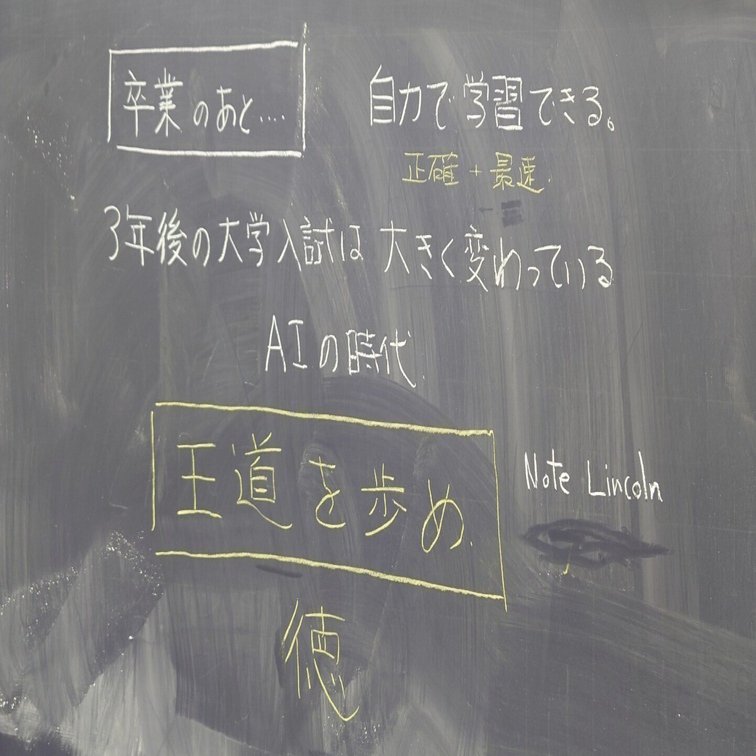 卒業のあと....
自力で学習できる。
正確+最速
3年後の大学入試は大きく変わっている
AIの時代
王道を歩め.
Note Lincoln
徳